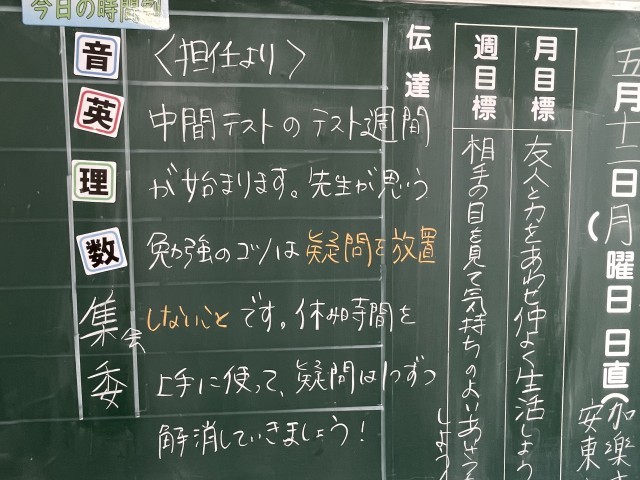 五月十二日(月曜日 日直(加楽
安東
月目標
友人と力をあわせ仲よく生活しよう
週目標
相手の目を見て気持ちのよいあいさつを
しよう
伝達
〈担任より〉
中間テストのテスト週間
が始まります。先生が思う
勉強のコツは疑問を放置
しないことです。休み時間を
上手に使って、疑問は1つずつ
解消していきましょう!
今日の時間割
音
英
理
数
集会
委